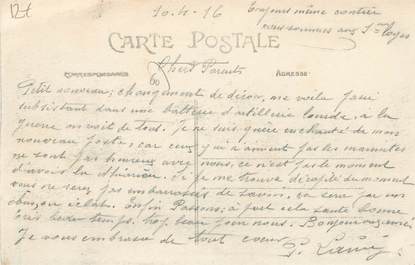 10-4-16 Toujours même contrée
nous sommes aux
CARTE POSTALE
CORRESPONDANCE ADRESSE
Chers Parents
Petit nouveau, changement de décor, me voilà passé
subsistant dans une batterie d'artillerie lourde, à la
guerre on voit de tout. Je ne suis guère enchanté de mon
nouveau poste, car ceux qui n'aiment pas les marmites
ne sont pas heureux avec nous, ce n'est pas le moment
d'avoir la diarrhée. Si je me trouve décapité du moment
vous ne serez pas embarrassés de savoir, ça sera par un
obus, un éclat. Enfin Passons; à part cela santé bonne
très beau temps. Bonjour
Je vous embrasse de tout coeur